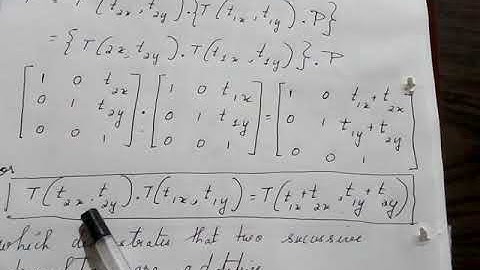 T(t2x, t2y).{T(t1x, t1y).P}
= {T(2x, t2y).T(t1x, t1y)}.P
[1 0 t2x; 0 1 t2y; 0 0 1] . [1 0 t1x; 0 1 t1y; 0 0 1] = [1 0 t1x+t2x; 0 1 t1y+t2y; 0 0 1]
or
T(t2x, t2y).T(t1x, t1y) = T(t1x+t2x, t1y+t2y)
which that two sucessive